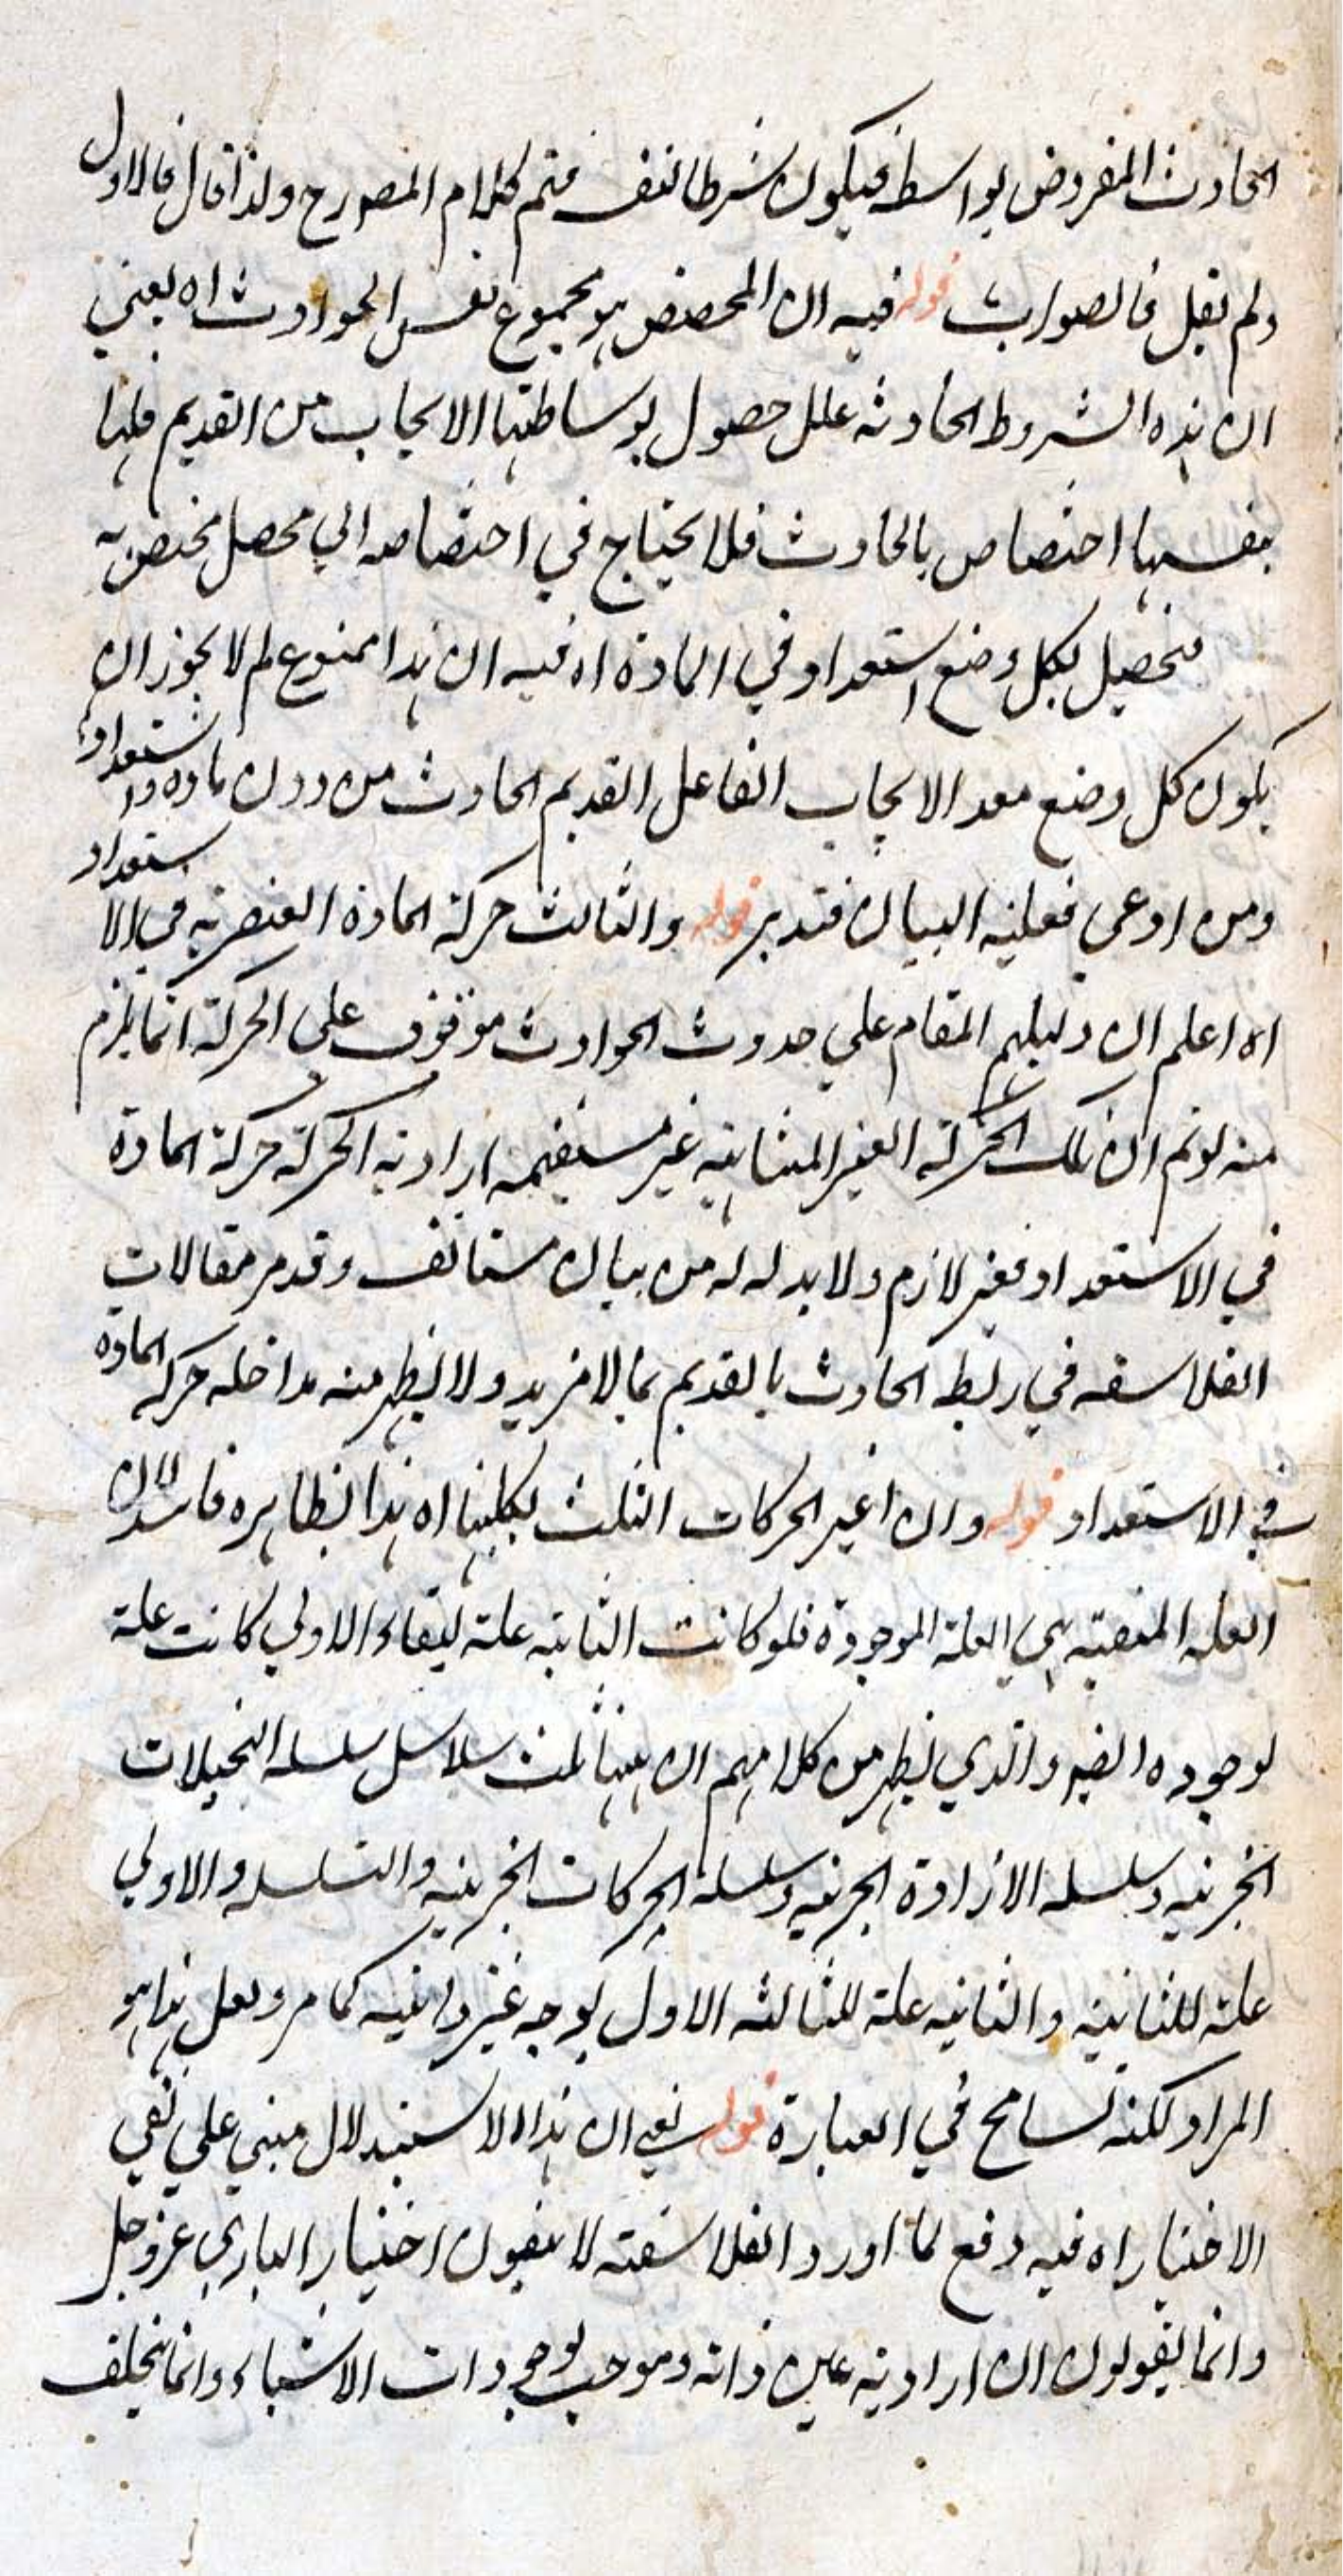 الحادث المفروض بواسطة فيكون شرطا لنفسه فتم كلام المصرح ولذا قال فالاول
ولم يقل فالصواب قوله فيه ان المخصص هو مجموع نفس الحوادث اه يعني
ان هذه الشروط الحادثة علل حصول بوساطتها الايجاب من القديم فلها
بنفسها اختصاص بالحادث فلا يحتاج في اختصاصه الي محصل مختص به
فيحصل بكل وضع استعداد في المادة اه فيه ان هذا ممنوع لم لا يجوز ان
يكون كل وضع معد الايجاب الفاعل القديم الحادث من دون مادة واستعداد
ومن ادعي فعليه البيان فتدبر قوله والثالث حركة المادة العنصرية في الاستعداد
اه اعلم ان دليلهم المقام علي حدوث الحوادث موقوف على الحركة انما يلزم
منه لو تم ان تلك الحركة الغير المتناهية غير مستقيمة ارادته الحركة حركة المادة
في الاستعداد فغير لازم ولا بد له له من بيان مستانف وقد مر مقالات
الفلاسفه في ربط الحادث بالقديم بما لا مزيد ولا يظهر منه مداخله حركه المادة
في الاستعداد قوله وان اغير الحركات الثلث بكليتها اه هذا بظاهره فاسد لان
العله المبقية هي العلة الموجودة فلو كانت الثانية علة لبقاء الاولي كانت علة
لوجوده ايضا والذي يظهر من كلامهم ان ههنا ثلث سلاسل سلسله التخيلات
الجزئيه وسلسله الارادة الجزئيه وسلسله الحركات الجزئيه والسلسله الاولي
علة للثانية والثانيه علة للثالثه الاول بوجه غير دائنيه كما مر ولعل هذا هو
المراد لكنه تسامح في العبارة قوله يعني ان هذا الاستدلال مبني علي نفي
الاختيار اه فيه دفع لما اورد الفلاسفته لا ينفون اختيار الباري عز وجل
وانما يقولون ان ارادته عين ذاته وموجب لوجودات الاشياء وانما يختلف